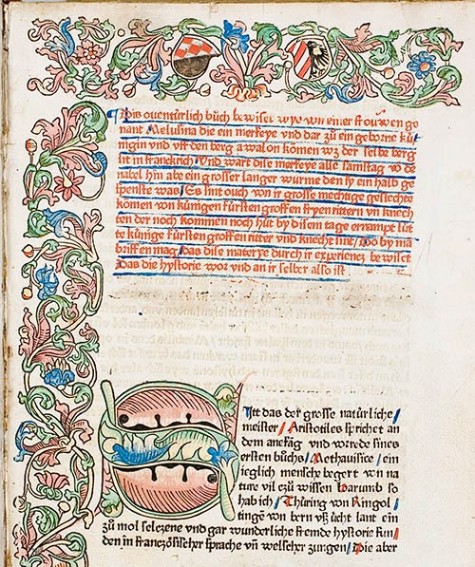 Dis oventürlich bůch bewiset wye von einer frouwen ge
nant Melusina die ein merfeye vnd dar zů ein geborne kü
nigin vnd vß dem berg awalon komen wz der selbe berg
lit in franckrich / Vnd wart dise merfeye alle samstag vō dē
nabel hin abe ein grosser langer wurme den sy ein halb ge
spenste was / Es sint ouch von ir grosse mechtige geslechte
komen von künigen fürsten groffen fryen rittern vn̄ knech
ten der noch kommen noch hüt by disem tage ernampt lüt
te künige fürsten groffen ritter vnd knechte sint / Do by mā
briffen mag das dise materye durch ir experiencz bewiset
Das die hystorie wor vnd an ir selber also ist
SItt das der grosse natürliche /
meister / Aristotiles sprichet an
dem anefāg vnd vorrede sines
ersten bůchs / Methauisice / ein
ieglich mensche begert von na
ture vil zů wissen Harumb so
hab ich / Thüring von Ringol /
tingē von bern vß ücht lant ein
zů mol selczene vnd gar wunderliche fremde hystorie fun /
den in franczösischer sprache vn̄ welscher zungen / Die aber